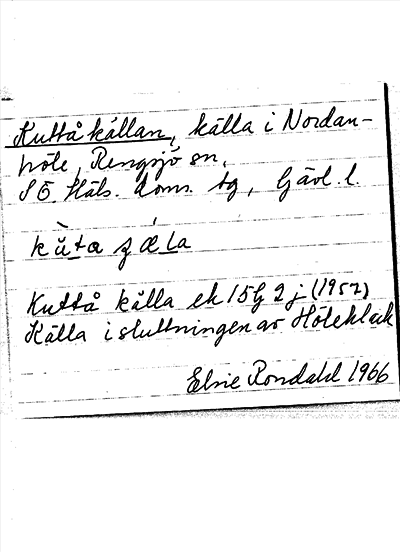 Kuttåkällan, källa i Nordan-
höle, Rengsjö sn,
S Ö. Häls. doms. tg, Gävl. l.
kùta ɟǽla
Kuttå källa ek 15G 2j (1957)
Källa i sluttningen av Höleklack
Elsie Rondahl 1966